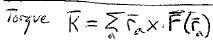 Torque K̄ = Σₐ r̄ₐ × F̄(r̄ₐ)